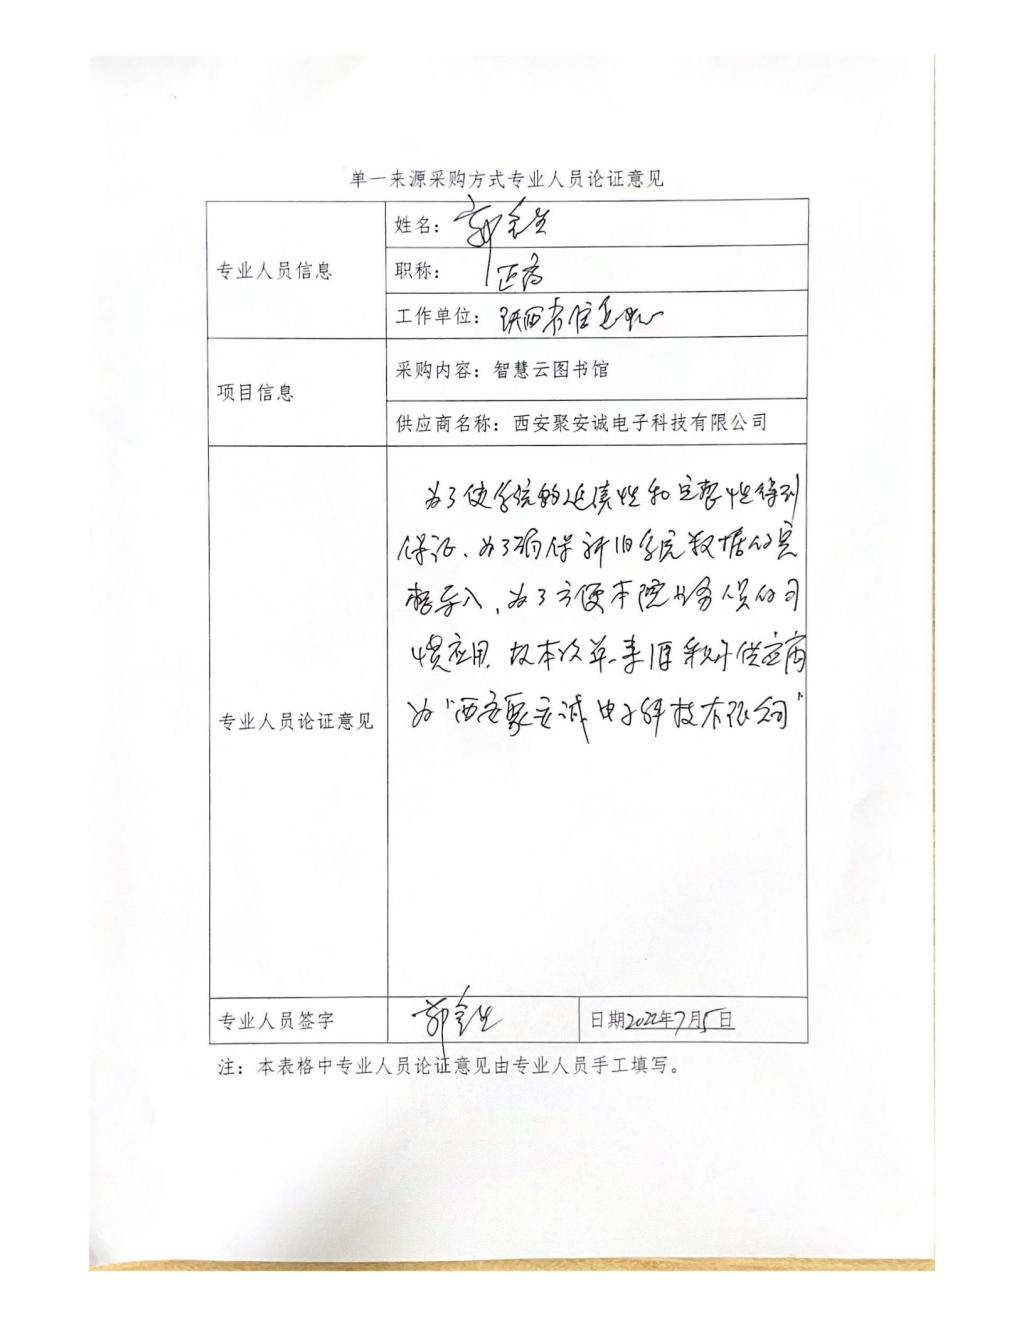 单一来源采购方式专业人员论证意见
专业人员信息
姓名：郭全生
职称：正高
工作单位：陕西省信息中心
项目信息
采购内容：智慧云图书馆
供应商名称：西安聚安诚电子科技有限公司
专业人员论证意见
为了使系统的延续性和完整性得到
保证、为了确保新旧系统数据的完
整导入，为了方便本院业务人员的习
惯应用，故本次单一来源采购供应商
为“西安聚安诚电子科技有限公司”
专业人员签字
郭全生
日期2022年7月5日
注：本表格中专业人员论证意见由专业人员手工填写。